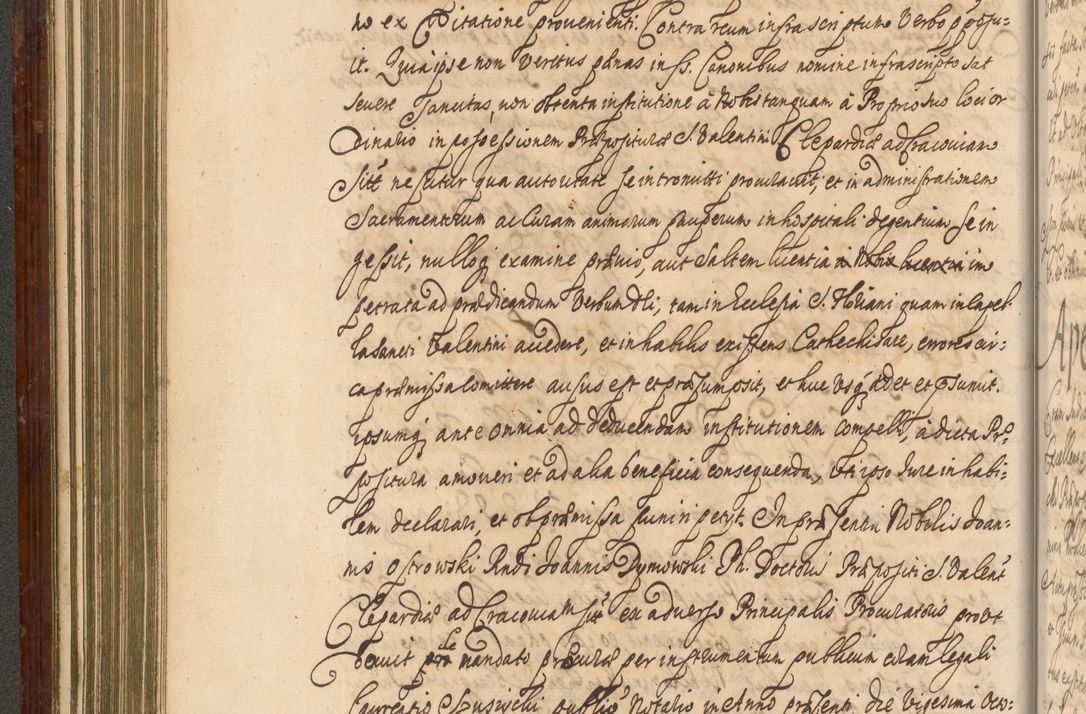 no ex Citatione provenienti. Contra reum infrascriptum Verbo pposu:
it. Quia ipse non Veritus pænas in ss. Canonibus nomine infrascripto sat
severe Sancitas, non obtenta institutione à Nobis tanquam à Proprio suo loci or
Dinario in possessionem Præpositura S. Valentini Clepardiæ ad Cracoviam
Sitæ nescitur qua autoritate se intromitti procuravit, et in administrationem
Sacramentorum ac Curam animarum pauperum in hospitali degentium se in
gessit, nulloq examine prævio, aut saltem licentia im
petrata ad prædicandum Verbum Dei, tam in Ecclesia S. Floriani quam in Capel
la Sancti Valentini accedere, et inhabilis existens Cathechisare, errores cir:
ca præmissa Comittere ausus est et præsumpsit, et huc usq audet et psumit.
ipsumq ante omnia ad deducendam institutionem compelli, à dicta Præ
positura amoveri et ad alia beneficia consequenda, uti ipso Jure inhabi:
lem declarari, et ob præmissa puniri petyt. In præsentia Nobilis Joan:
nis Ostrowski Rndi Joannis Dymowski Ph. Doctoris Præpositi S. Valent
Clepardiæ ad Cracoviam sitæ ex adverso Principalis Procuratoris prout
docuit de mandato procuræ per instrumentum publicum coram legali
Laurentio publico Notario in Anno præsenti die Vigesima octa: